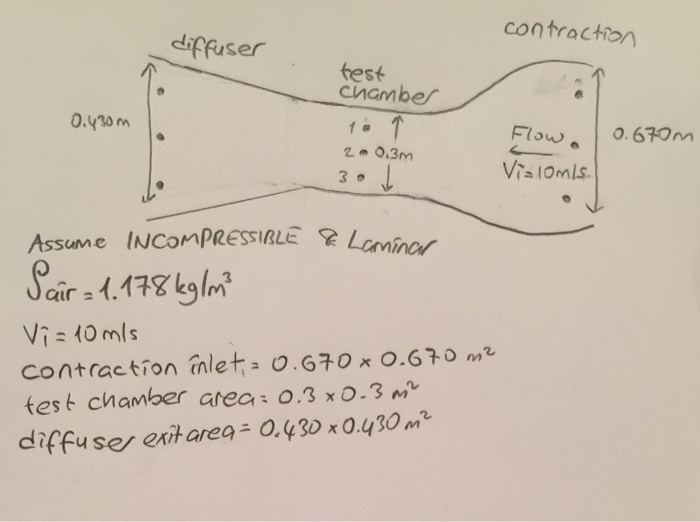 contraction
diffuser
test
chamber
0.430m
1
2 0.3m
3
Flow
Vi=10m/s.
0.670m
Assume INCOMPRESSIBLE & Laminar
ρair = 1.178kg/m³
Vi = 10m/s
contraction inlet, = 0.670 x 0.670 m²
test chamber area = 0.3 x 0.3 m²
diffuser exit area = 0.430 x 0.430 m²